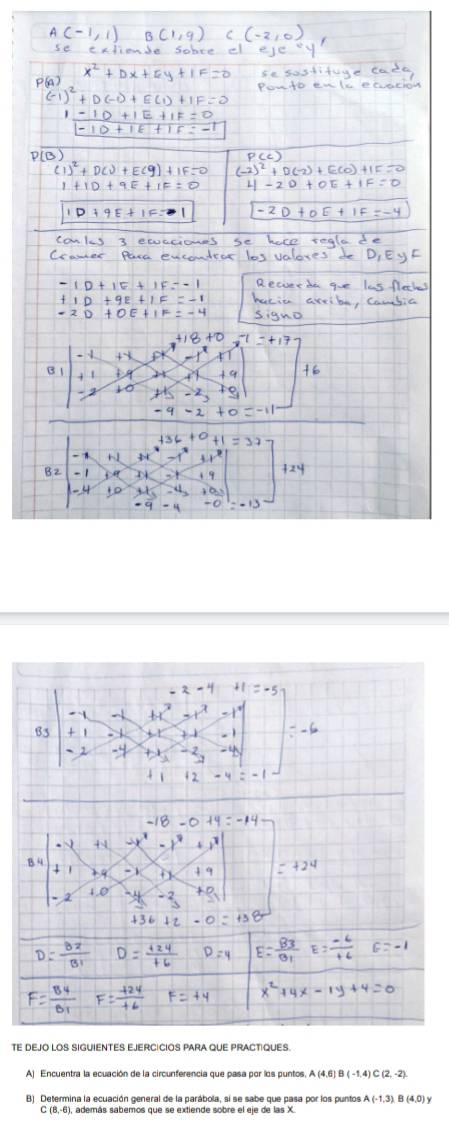 A (-1,1) B (1,9) C (-2,0)
se extiende sobre el eje "y"
x² + Dx + Ey + 1F = 0
se sustituye cada
Punto en la ecuación
P(A)
(-1)² + D(-1) + E(1) + 1F = 0
1 - 1D + 1E + 1F = 0
-1D + 1E + 1F = -1
P(B)
(1)² + D(1) + E(9) + 1F = 0
1 + 1D + 9E + 1F = 0
1D + 9E + 1F = -1
P(C)
(-2)² + D(-2) + E(0) + 1F = 0
4 - 2D + 0E + 1F = 0
-2D + 0E + 1F = -4
Con las 3 ecuaciones se hace regla de
Cramer Para encontrar los valores de D, E y F
-1D + 1E + 1F = -1
+1D + 9E + 1F = -1
-2D + 0E + 1F = -4
Recuerda que las flechas
hacia arriba, cambia
signo
+18 +0 -1 = +17
B1
-1 +1 +1 -1 +1
+1 +9 +1 +1 +9
-2 +0 +1 -2 +0
+6
-9 -2 +0 = -11
+36 +0 +1 = 37
B2
-1 +1 +1 -1 +1
-1 +9 +1 -1 +9
-4 +0 +1 -4 +0
+24
-9 -4 -0 = -13
-2 -4 +1 = -5
B3
-1 -1 +1 -1 -1
+1 -1 +1 +1 -1
-2 -4 +1 -2 -4
= -6
+1 +2 -4 = -1
-18 -0 +4 = -14
B4
-1 +1 -1 -1 +1
+1 +9 -1 +1 +9
-2 +0 -4 -2 +0
= +24
+36 +2 -0 = +38
D = B2/B1 D = +24/+6 D = 4 E = B3/B1 E = -6/+6 E = -1
F = B4/B1 F = +24/+6 F = +4 x² + 4x - 1y + 4 = 0
TE DEJO LOS SIGUIENTES EJERCICIOS PARA QUE PRACTIQUES.
A) Encuentra la ecuación de la circunferencia que pasa por los puntos, A (4,6) B ( -1,4) C (2, -2).
B) Determina la ecuación general de la parábola, si se sabe que pasa por los puntos A (-1,3), B (4,0) y
C (8,-6), además sabemos que se extiende sobre el eje de las X.